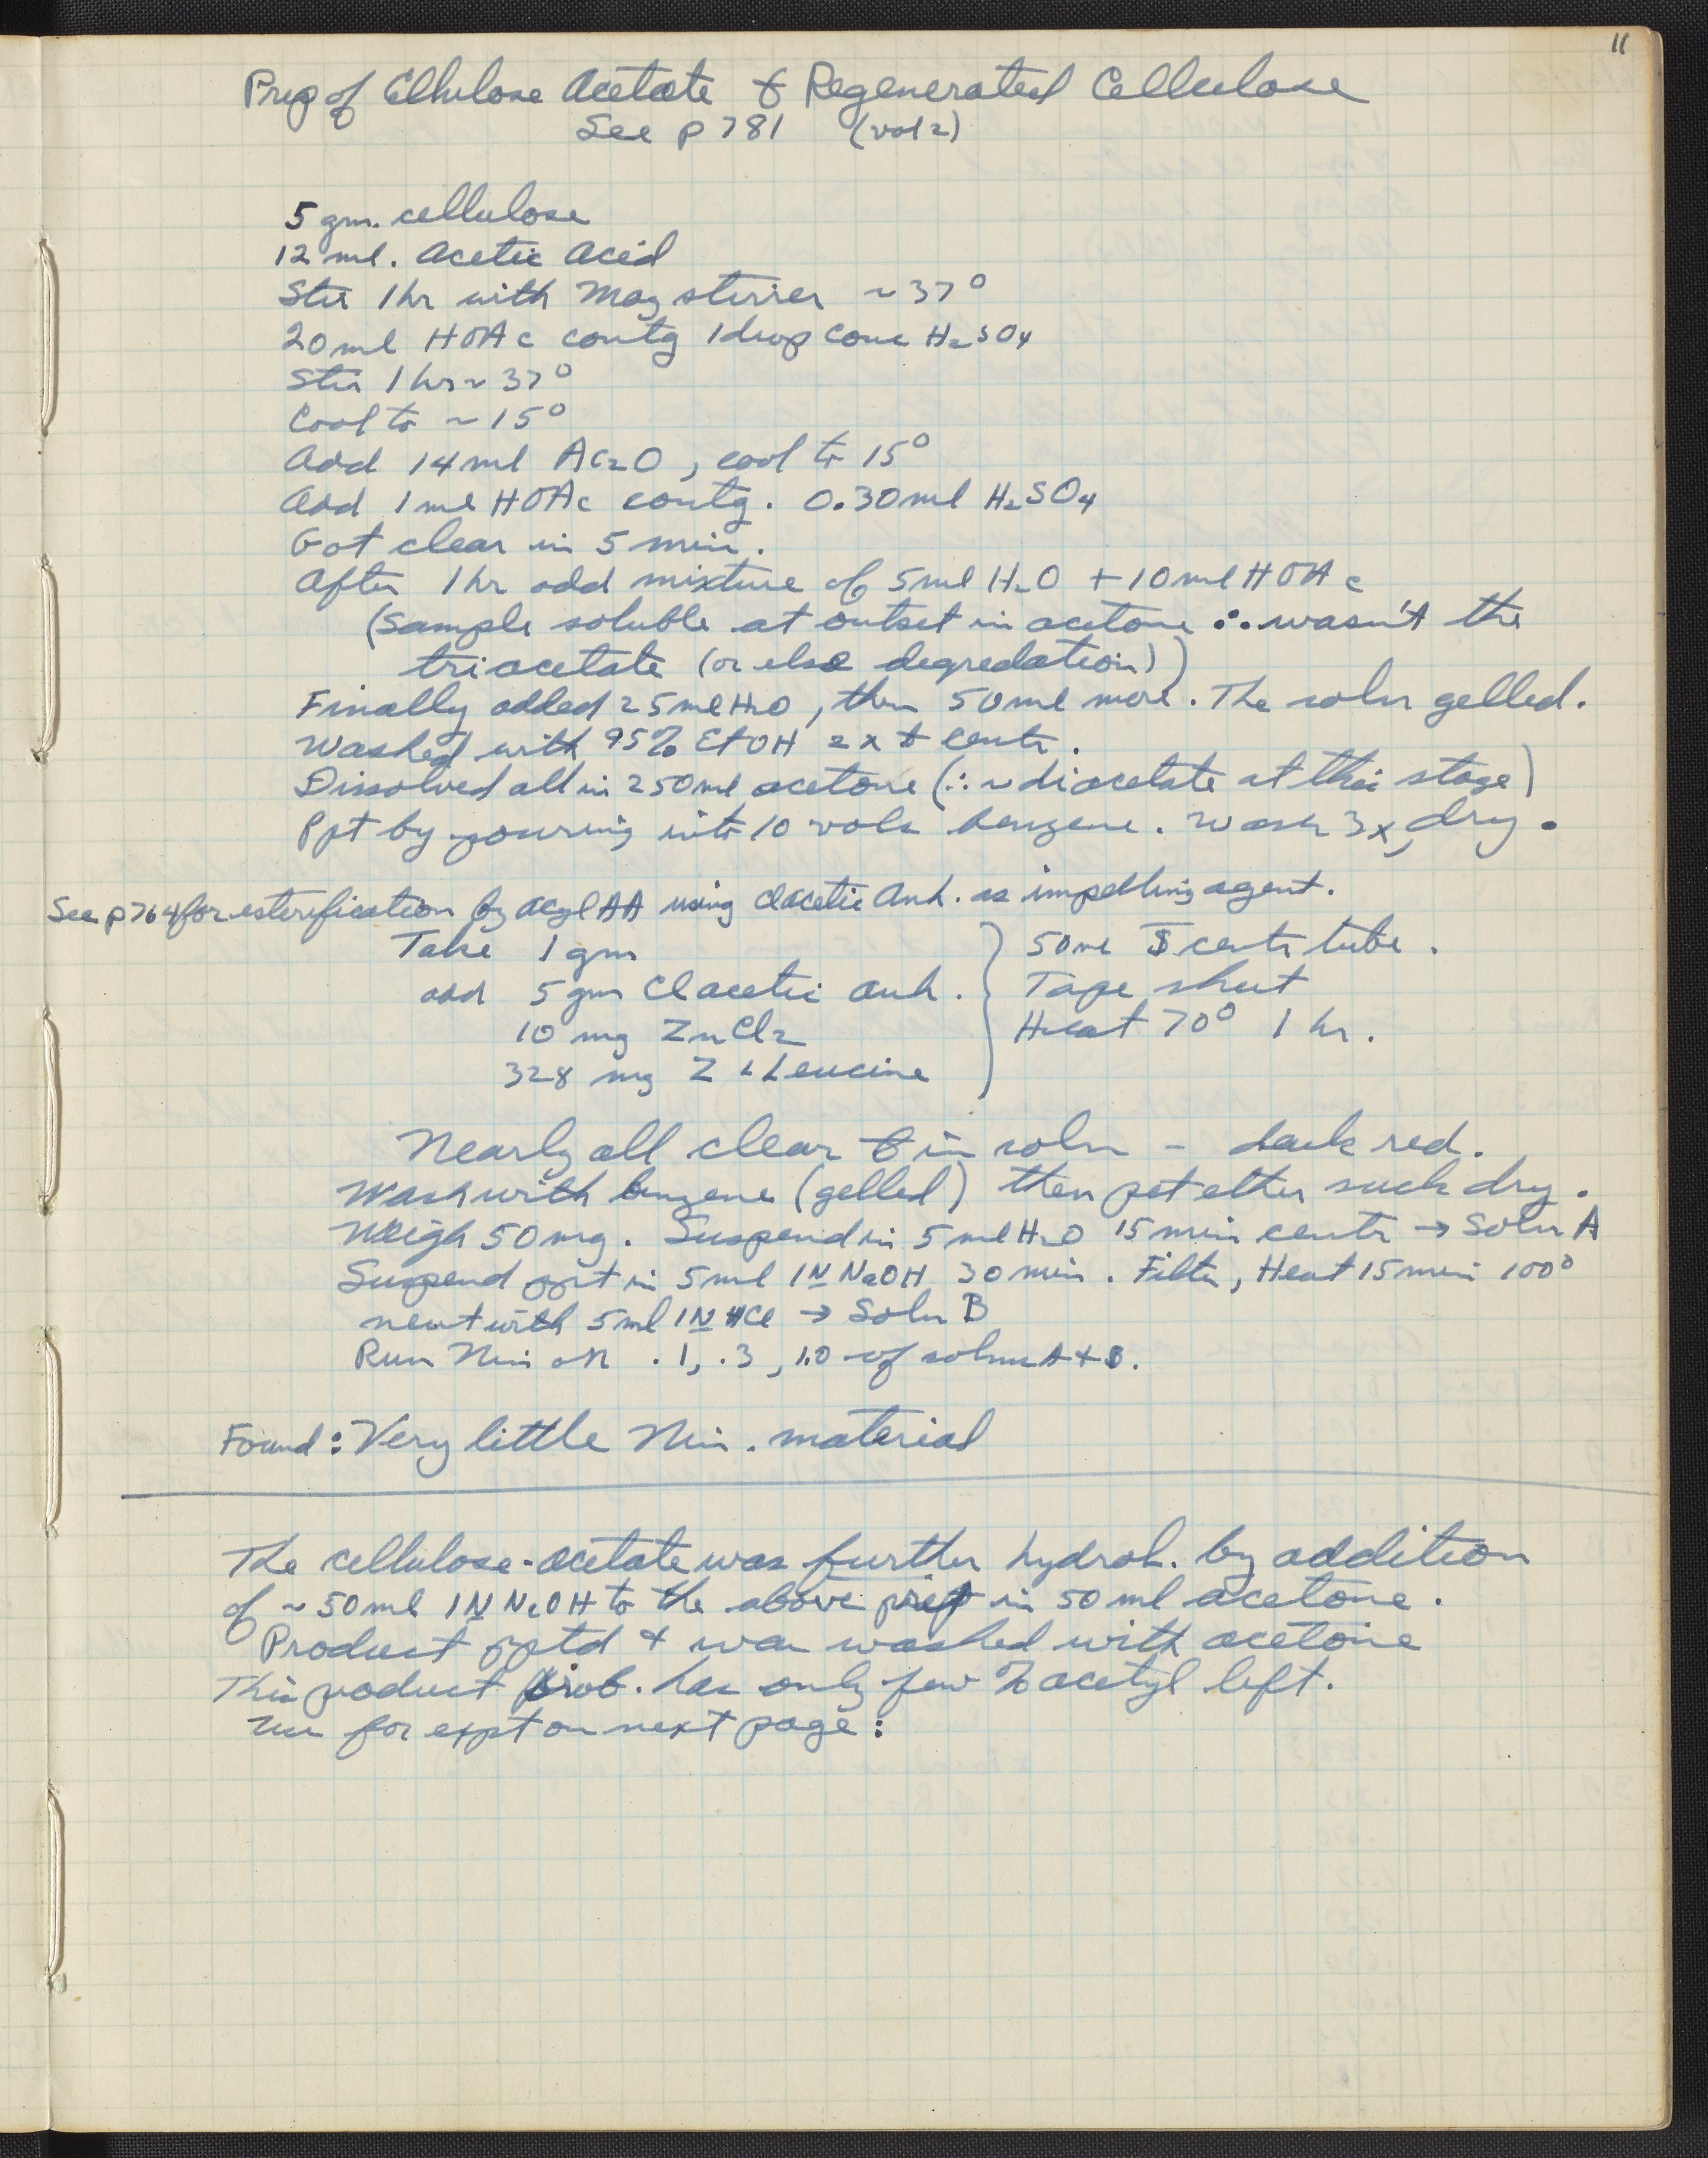 11
Prep of Cellulose Acetate & Regenerated Cellulose
See p 781 (vol 2)
5 gm. cellulose
12 ml. Acetic Acid
Stir 1 hr with Mag stirrer ~ 37°
20 ml HOAc contg 1 drop conc H₂SO₄
Stir 1 hr ~ 37°
Cool to ~ 15°
Add 14 ml Ac₂O, cool to 15°
Add 1 ml HOAc contg. 0.30 ml H₂SO₄
Got clear in 5 min.
After 1 hr add mixture of 5 ml H₂O + 10 ml HOAc
(Sample soluble at outset in acetone ∴ wasn't the
triacetate (or else degredation))
Finally added 25 ml H₂O, then 50 ml more. The soln gelled.
Washed with 95% EtOH 2x & centr.
Dissolved all in 250 ml acetone (∴ ~ diacetate at this stage)
Ppt by pouring into 10 vols benzene. Wash 3x, dry.
See p 764 for esterification by acyl AA using Clacetic Anh. as impelling agent.
Take 1 gm } 50 ml ⦵ centr tube.
add 5 gm Clacetic anh. Tape shut
10 mg ZnCl₂ Heat 70° 1 hr.
328 mg Z L Leucine
Nearly all clear & in soln - dark red.
Wash with benzene (gelled) then pet ether suck dry.
Weigh 50 mg. Suspend in 5 ml H₂O 15 min centr → Soln A
Suspend ppt in 5 ml 1N NaOH 30 min. Filter, Heat 15 min 100°
neut with 5 ml 1N HCl → Soln B
Run Nin on .1, .3, 1.0 of solns A + B.
Found: Very little Nin. material
The cellulose-acetate was further hydrol. by addition
of ~ 50 ml 1N NaOH to the above prep in 50 ml acetone.
Product pptd & was washed with acetone
This product prob. has only few % acetyl left.
Use for expt on next page: